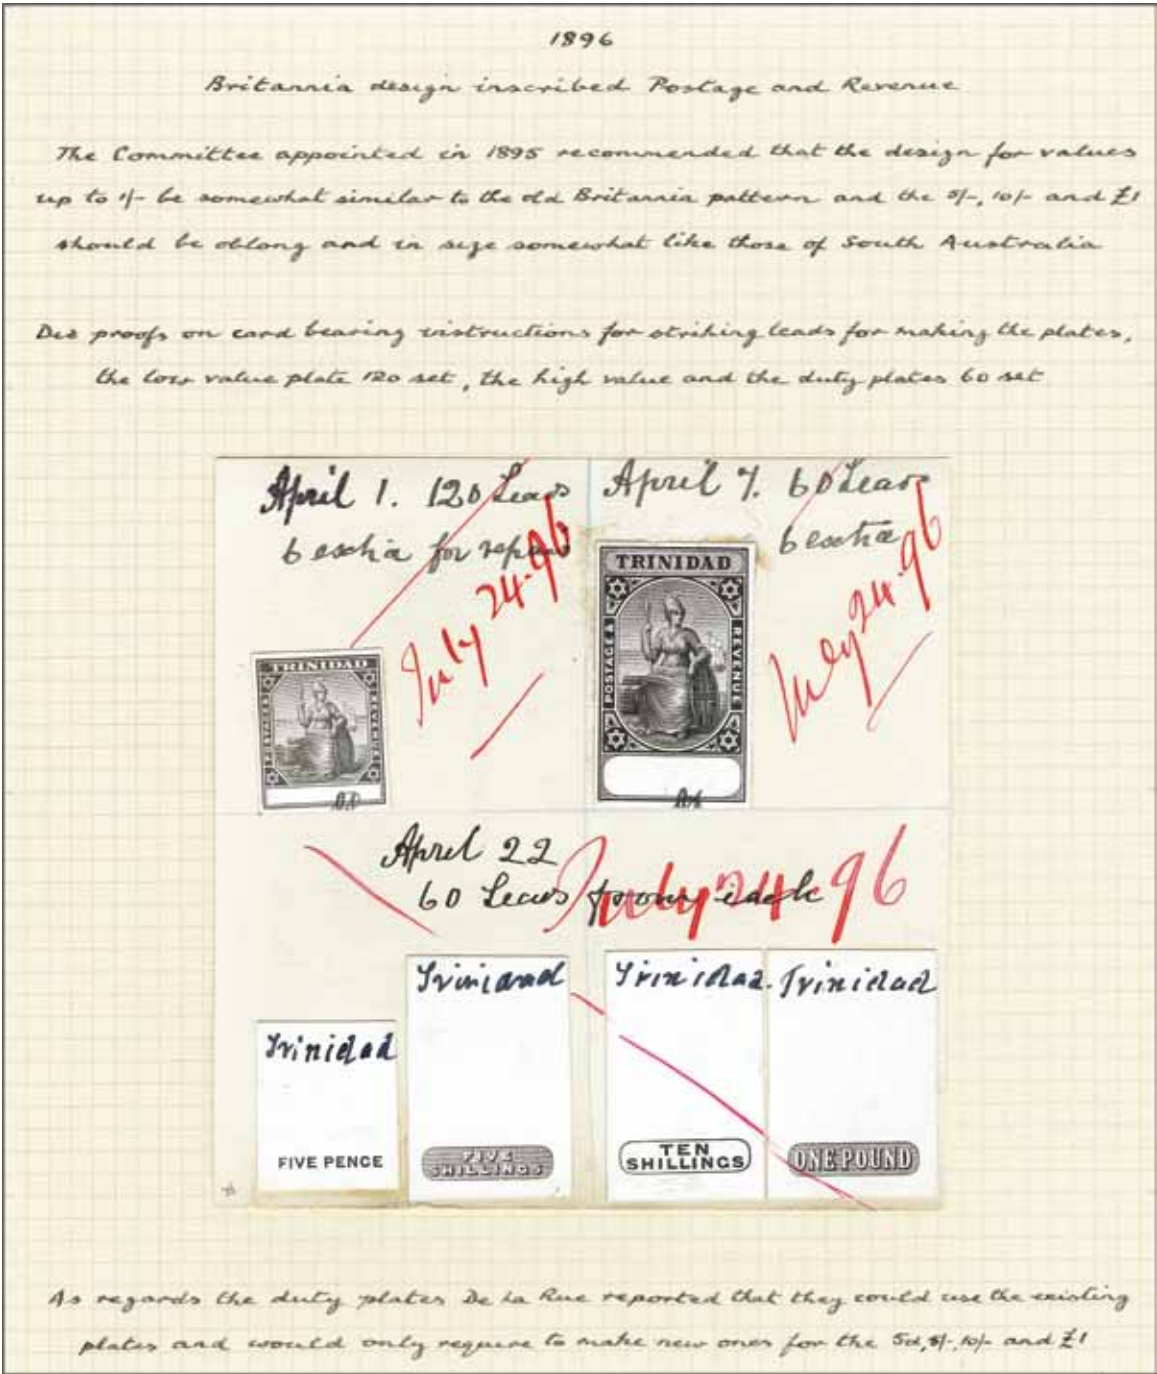 1896
Britannia design inscribed Postage and Revenue
The Committee appointed in 1895 recommended that the design for values
up to 1/- be somewhat similar to the old Britannia pattern and the 5/-, 10/- and £1
should be oblong and in size somewhat like those of South Australia
Die proofs on card bearing instructions for striking leads for making the plates,
the low value plate 120 set, the high value and the duty plates 60 set
April 1. 120 Leads
6 extra for repairs
July 24-96
April 7. 60 Leads
6 extra
July 24-96
TRINIDAD
POSTAGE &
REVENUE
TRINIDAD
POSTAGE &
REVENUE
April 22
60 Leads from each
July 24-96
Trinidad
FIVE PENCE
Trinidad
FIVE
SHILLINGS
Trinidad.
TEN
SHILLINGS
Trinidad
ONE POUND
As regards the duty plates De La Rue reported that they could use the existing
plates and would only require to make new ones for the 5d, 5/-, 10/- and £1